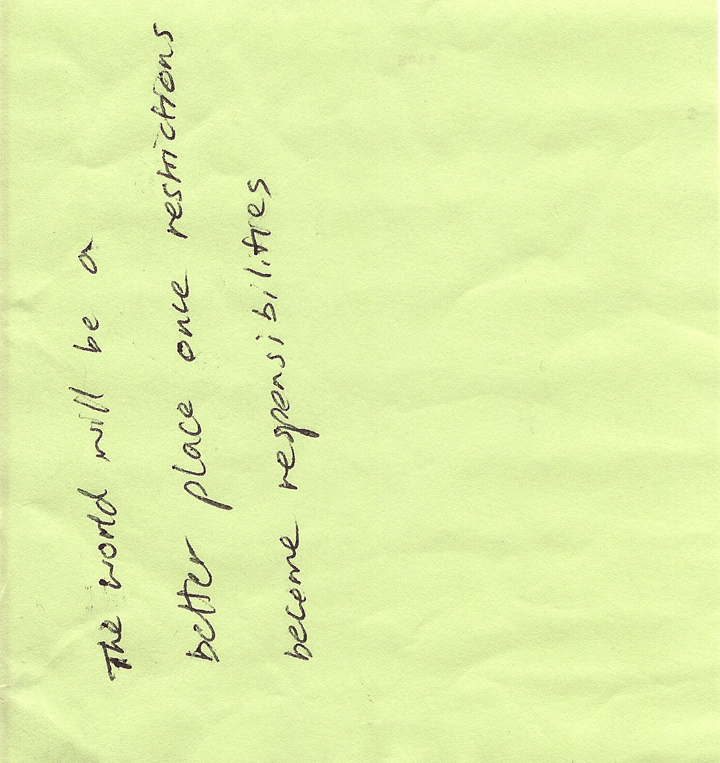 The world will be a
better place once restrictions
become responsibilities